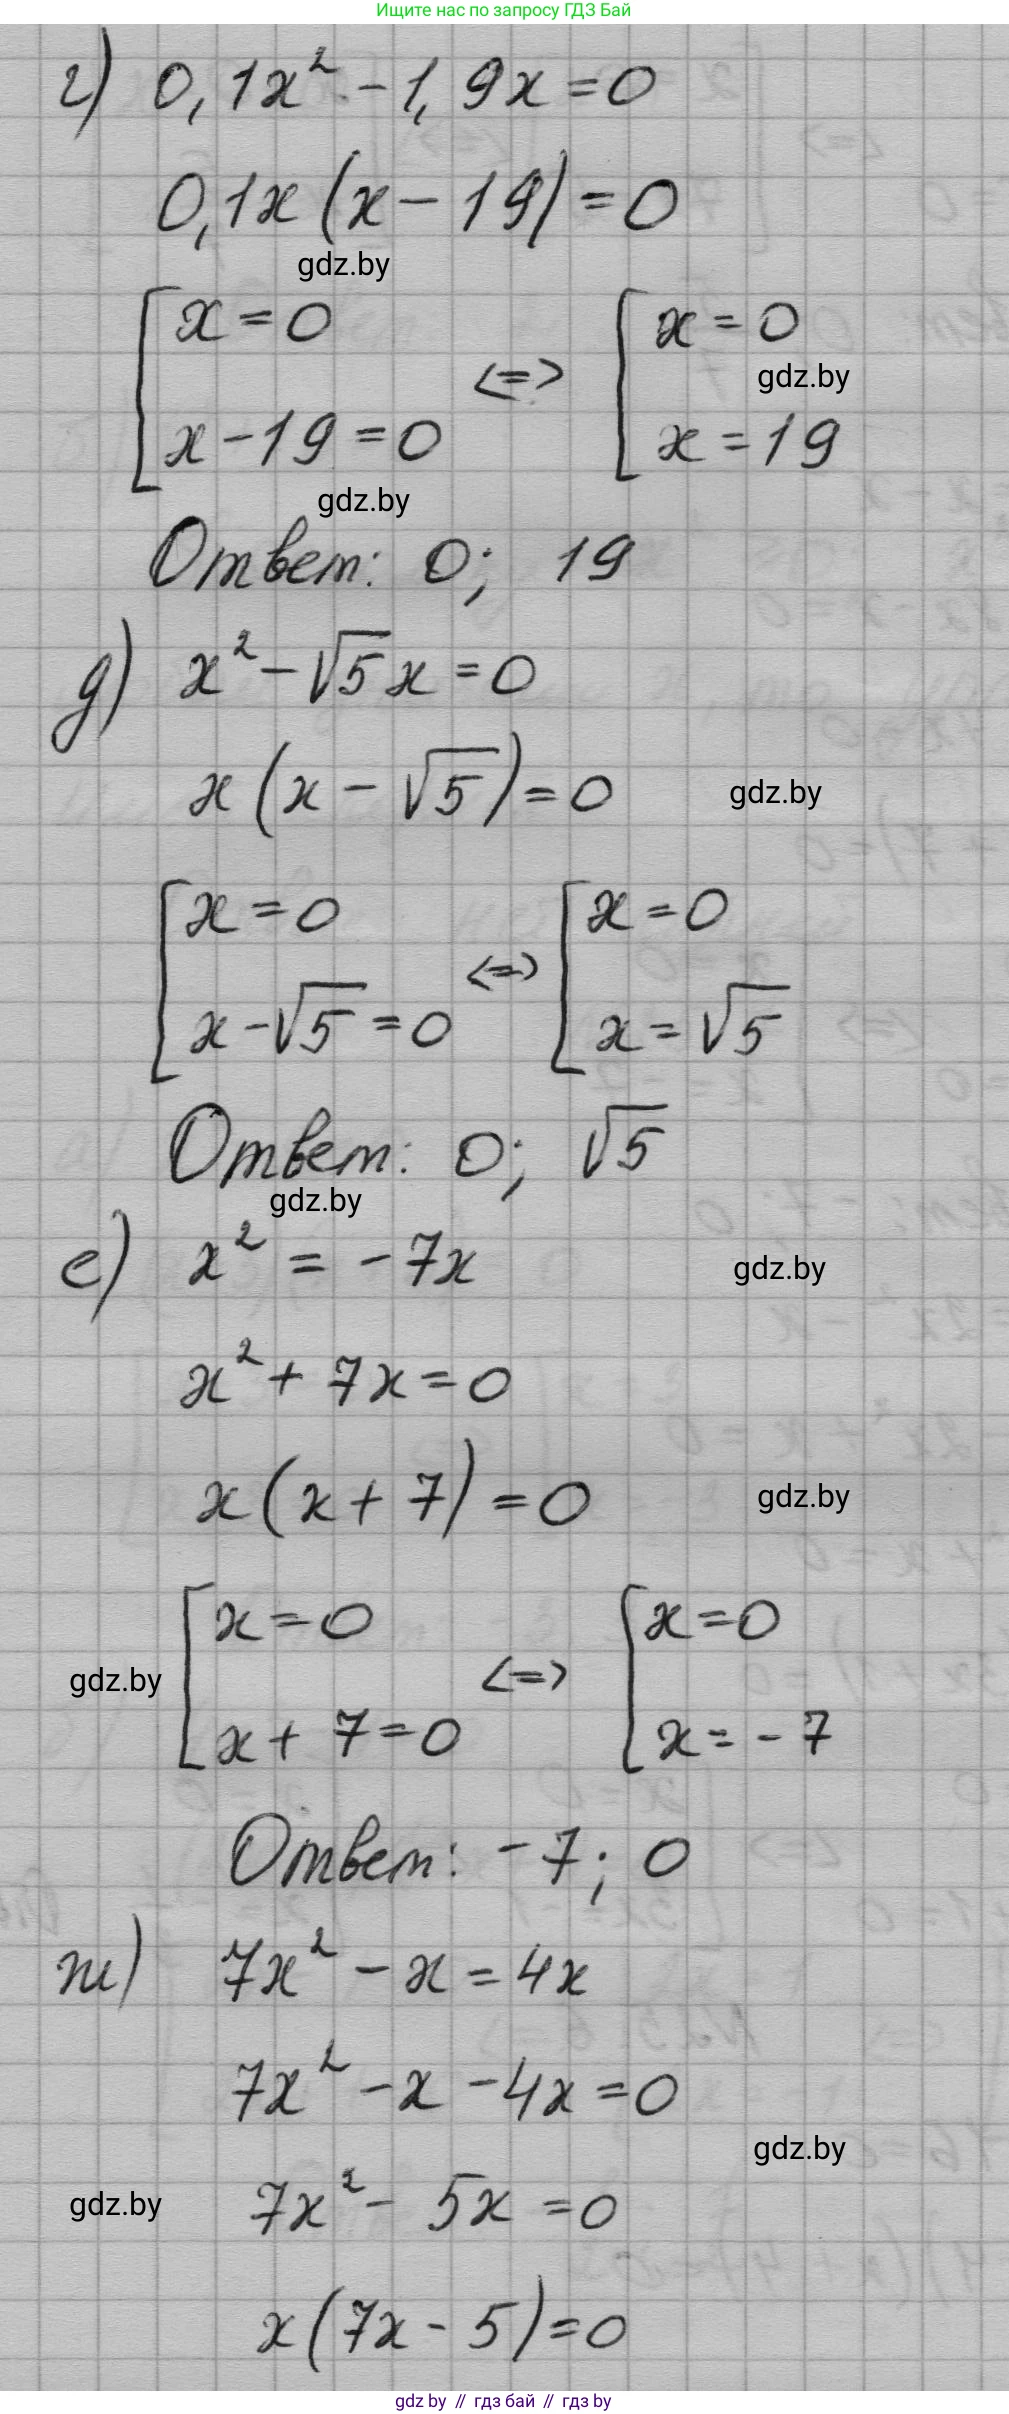 Ищите нас по запросу ГДЗ Бай
г) 0,1x² - 1,9x = 0
0,1x (x - 19) = 0
gdz.by
[ x = 0
x - 19 = 0
<=>
[ x = 0
gdz.by
x = 19
gdz.by
Ответ: 0; 19
д) x² - √5x = 0
x (x - √5) = 0
gdz.by
[ x = 0
x - √5 = 0
<=>
[ x = 0
x = √5
Ответ: 0; √5
gdz.by
е) x² = -7x
gdz.by
x² + 7x = 0
x (x + 7) = 0
gdz.by
gdz.by
[ x = 0
x + 7 = 0
<=>
[ x = 0
x = -7
Ответ: -7; 0
ж) 7x² - x = 4x
7x² - x - 4x = 0
gdz.by
gdz.by
7x² - 5x = 0
x (7x - 5) = 0
gdz by // гдз бай // гдз by